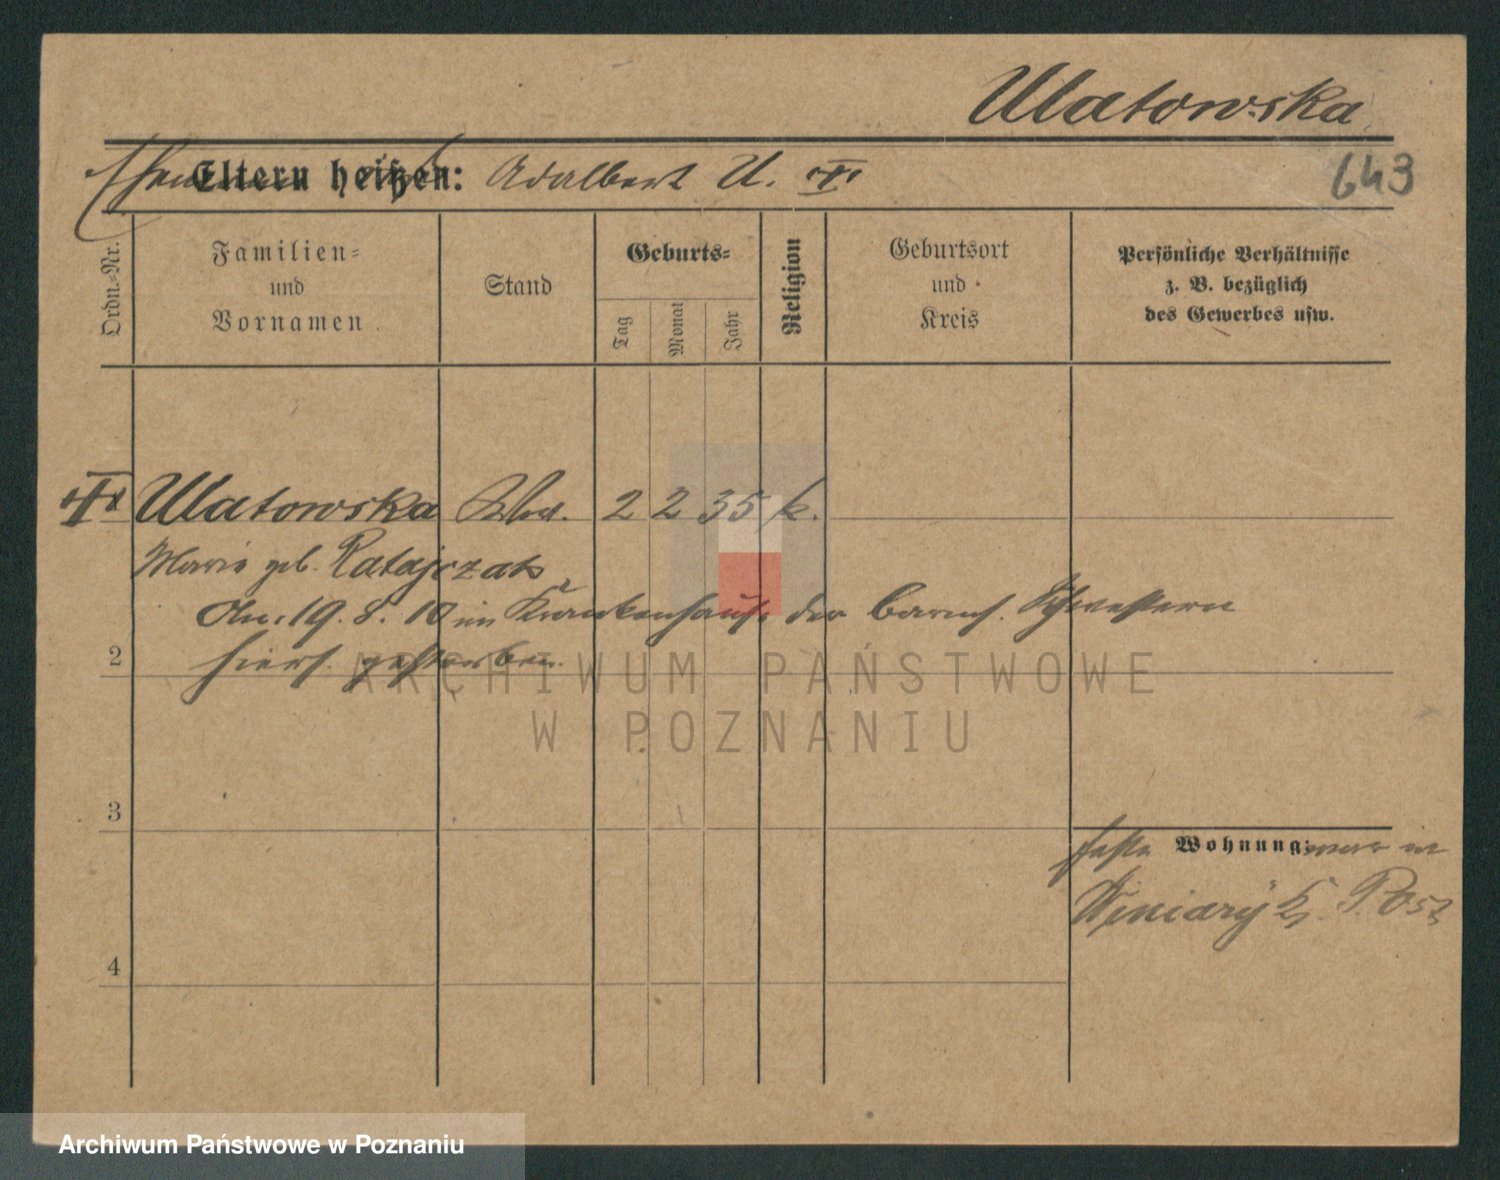 Ulatowska
643
Eltern heißen: Adalbert U.
Ordn.-Nr.
Familien-
und
Vornamen.
Stand
Geburts-
Tag
Monat
Jahr
Religion
Geburtsort
und
Kreis
Persönliche Verhältnisse
z. B. bezüglich
des Gewerbes usw.
Ulatowska Wwe. 2 2 35 k.
Marie geb. Ratajczak
Am 19. 8. 10 im Krankenhause der barmh. Schwestern
hiers. gestorben.
2
3
4
feste Wohnung: war in
Winiary K. Pos.
ARCHIWUM PAŃSTWOWE
W POZNANIU
Archiwum Państwowe w Poznaniu